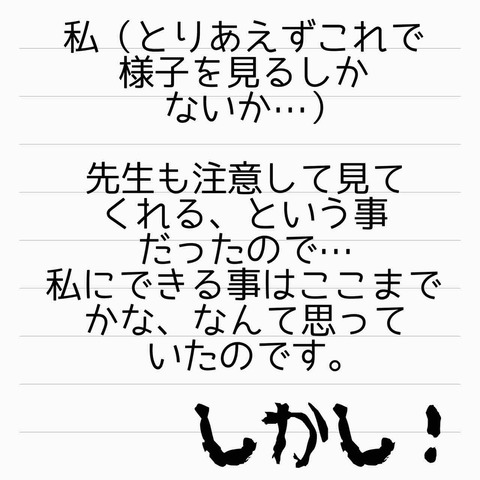 私（とりあえずこれで
様子を見るしか
ないか…）
先生も注意して見て
くれる、という事
だったので…
私にできる事はここまで
かな、なんて思って
いたのです。
しかし！